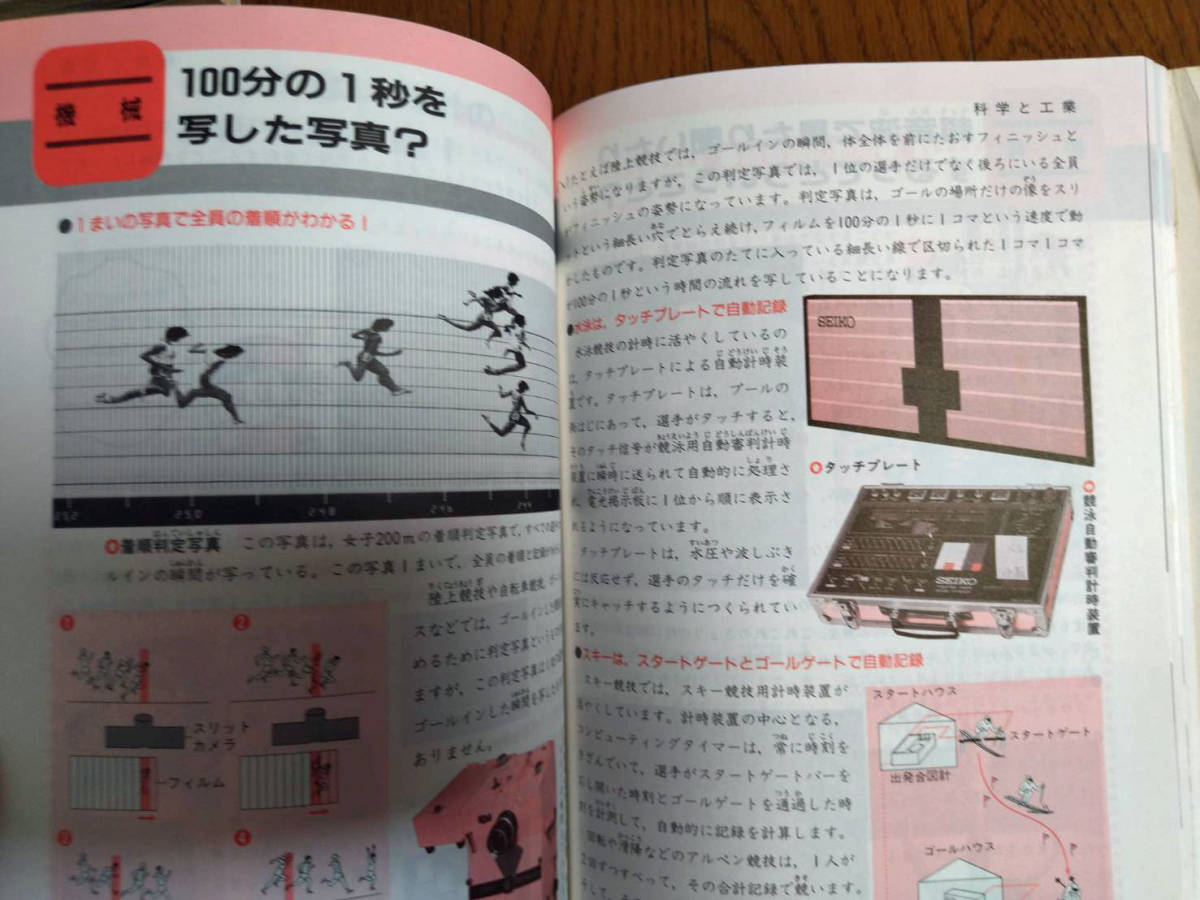 機械
100分の1秒を
写した写真?
●1まいの写真で全員の着順がわかる!
252
250
248
246
244
着順判定写真 この写真は、女子200mの着順判定写真で、すべての
ルインの瞬間が写っている。この写真1まいで、全員の着順と記録が
陸上競技や自転車競技、
スなどでは、ゴールインした
めるために判定写真というもの
ますが、この判定写真は1
ゴールインした瞬間を写した
ありません。
1
2
スリット
カメラ
フィルム
3
4
科学と工業
たとえば陸上競技では、ゴールインの瞬間、体全体を前にたおすフィニッシュと
いう姿勢になりますが、この判定写真では、1位の選手だけでなく後ろにいる全員
フィニッシュの姿勢になっています。判定写真は、ゴールの場所だけの像をスリ
ットという細長い穴でとらえ続け、フィルムを100分の1秒に1コマという速度で動
かしたものです。判定写真のたてに入っている細長い線で区切られた1コマ1コマ
が100分の1秒という時間の流れを写していることになります。
●水泳は、タッチプレートで自動記録
水泳競技の計時に活やくしているの
は、タッチプレートによる自動計時装
置です。タッチプレートは、プールの
はじにあって、選手がタッチすると、
そのタッチ信号が競泳用自動審判計時
装置に瞬時に送られて自動的に処理さ
電光掲示板に1位から順に表示さ
れるようになっています。
タッチプレートは、水圧や波しぶき
には反応せず、選手のタッチだけを確
実にキャッチするようにつくられてい
ます。
SEIKO
タッチプレート
SEIKO
競泳自動審判計時装置
●スキーは、スタートゲートとゴールゲートで自動記録
スキー競技では、スキー競技用計時装置が
活やくしています。計時装置の中心となる、
コンピューティングタイマーは、常に時刻を
きざんでいて、選手がスタートゲートバーを
おし開いた時刻とゴールゲートを通過した時
刻を計測して、自動的に記録を計算します。
回転や滑降などのアルペン競技は、1人が
2回ずつすべって、その合計記録で競います。
スタートハウス
スタートゲート
出発合図計
ゴールハウス